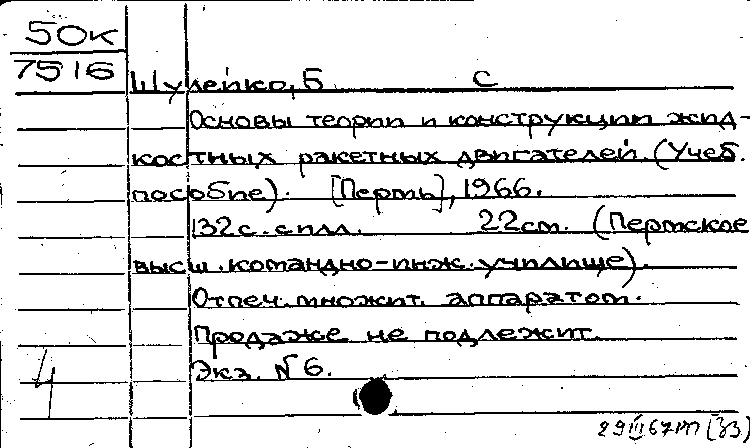 50к
7516
Шулейко, Б. С
Основы теории и конструкции жид-
костных ракетных двигателей. (Учеб.
пособие). [Пермь], 1966.
132с. с илл. 22см. (Пермское
высш. командно-инж. училище).
Отпеч. множит. аппаратом.
Продаже не подлежит.
Экз. №6.
4
29 III 67